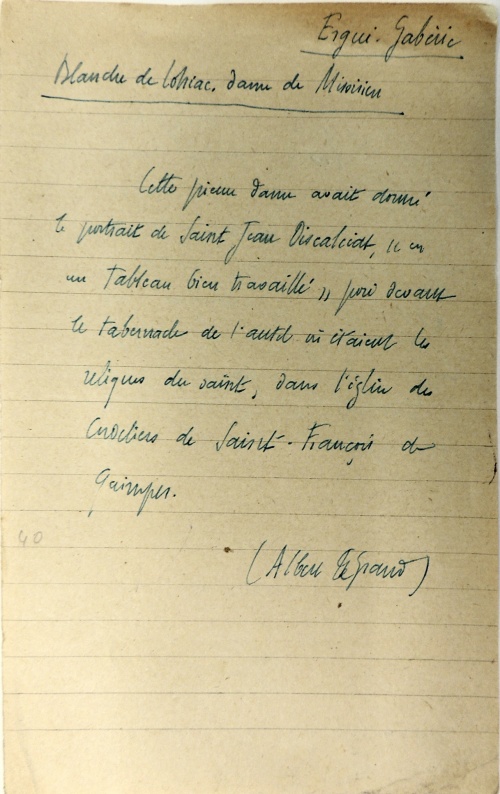 Ergué-Gabéric
Blanche de Lohéac, dame de Missirien
Cette pieuse dame avait donné
le portrait de Saint Jean Discalcéat, « en
un tableau bien travaillé », posé devant
le tabernacle de l'autel où étaient les
reliques du saint, dans l'église des
Cordeliers de Saint-François de
Quimper.
40
(Albert Le Grand)